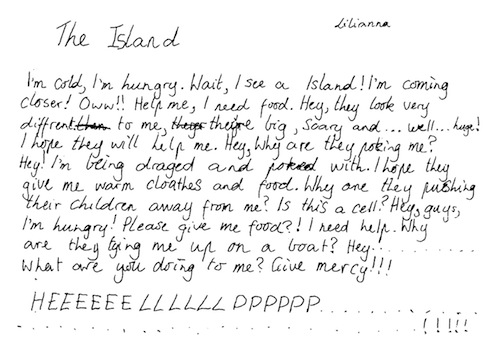 Lilianna
The Island
I'm cold, I'm hungry. Wait, I see a Island! I'm coming
closer! Oww!! Help me, I need food. Hey, they look very
diffrent to me, they're big, scary and... well... huge!
I hope they will help me. Hey, Why are they poking me?
Hey! I'm being draged and poked with. I hope they
give me warm cloathes and food. Why are they pushing
their children away from me? Is this a cell? Hey, guys,
I'm hungry! Please give me food?! I need help. Why
are they tying me up on a boat? Hey............
What are you doing to me? Give mercy!!!
HEEEEEELLLLLLPPPPPP...............
..........................................!!!!!